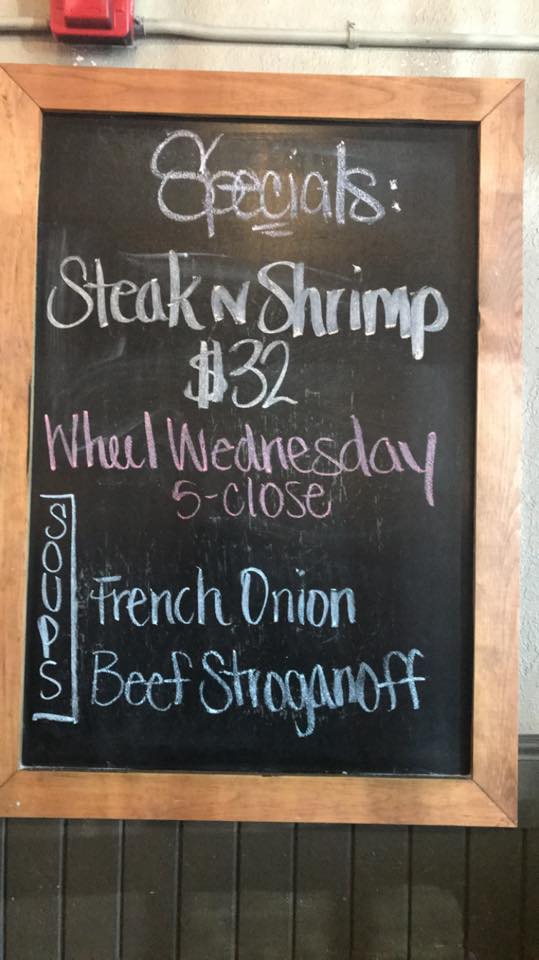 Specials:
Steak N Shrimp
$32
Wheel Wednesday
5-close
SOUPS
French Onion
Beef Stroganoff